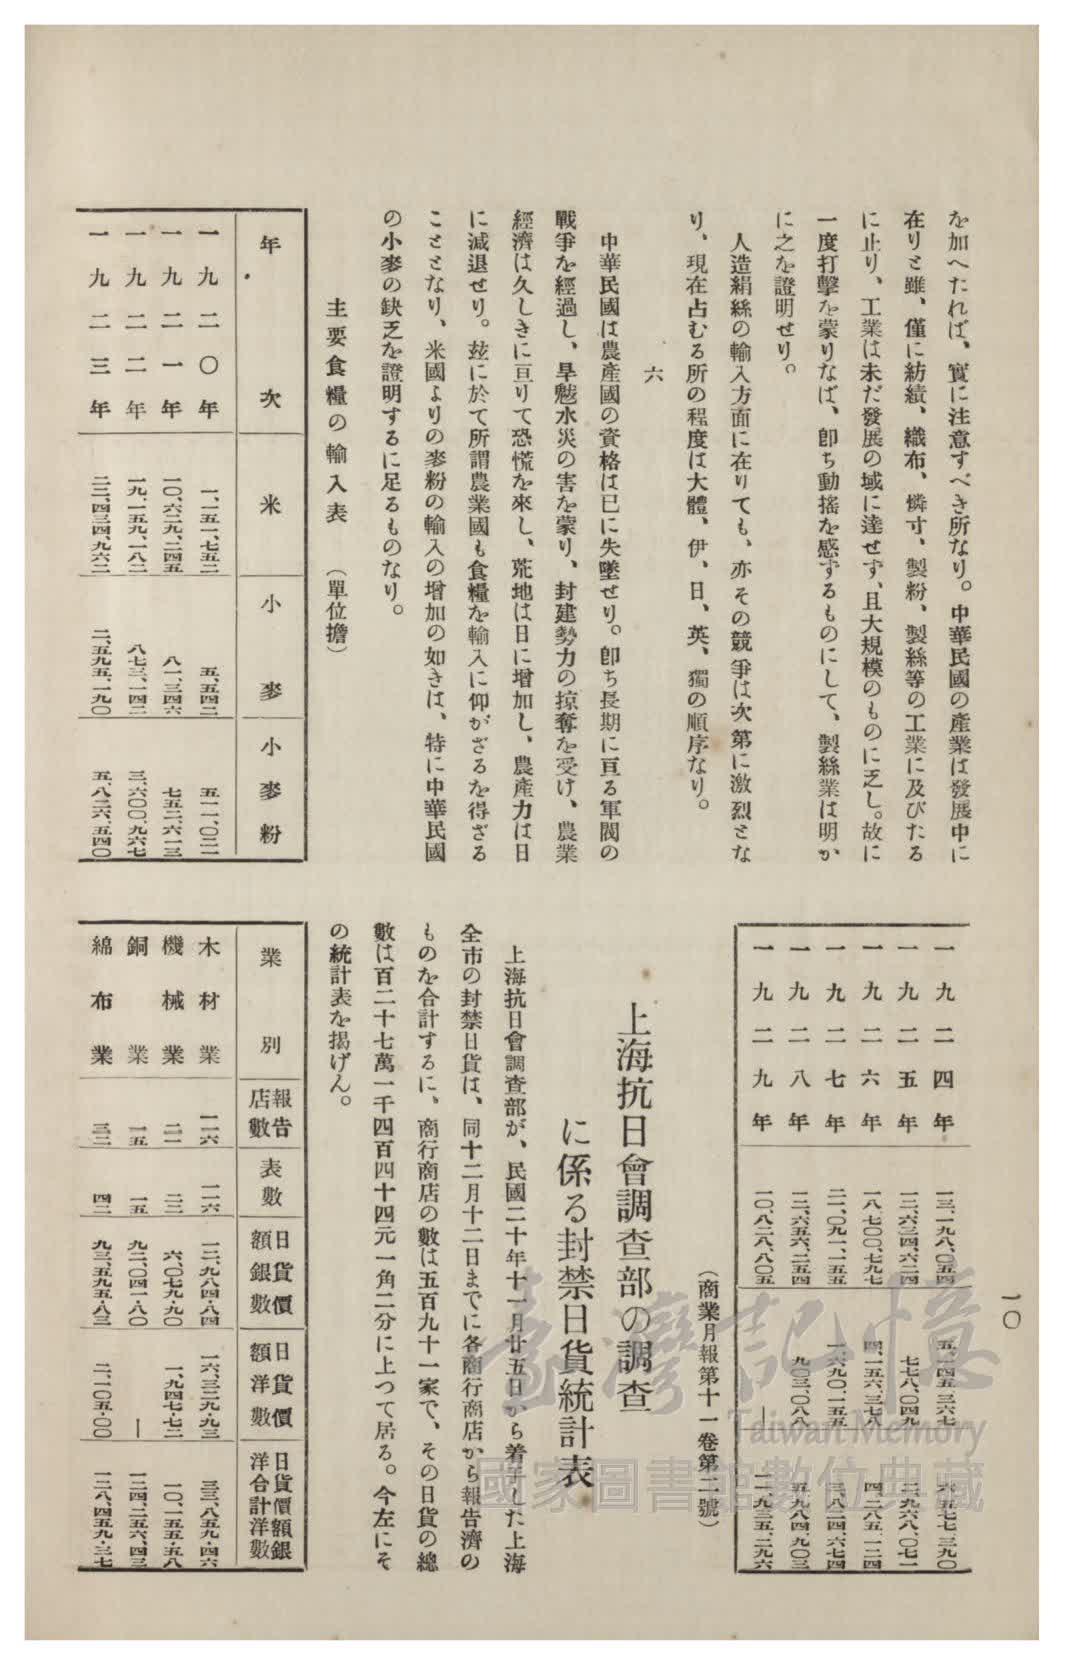 を加へたれば、實に注意すべき所なり。中華民國の產業は發展中に
在りと雖、僅に紡績、織布、憐寸、製粉、製絲等の工業に及びたる
に止り、工業は未だ發展の域に達せず、且大規模のものに乏し。故に
一度打擊を蒙りなば、卽ち動搖を感ずるものにして、製絲業は明か
に之を證明せり。
人造絹絲の輸入方面に在りても、亦その競爭は次第に激烈とな
り、現在占むる所の程度は大體、伊、日、英、獨の順序なり。
六
中華民國は農產國の資格は已に失墜せり。卽ち長期に亘る軍閥の
戰爭を經過し、旱魃水災の害を蒙り、封建勢力の掠奪を受け、農業
經濟は久しきに亘りて恐慌を來し、荒地は日に增加し、農產力は日
に減退せり。玆に於て所謂農業國も食糧を輸入に仰がざるを得ざる
こととなり、米國よりの麥粉の輸入の增加の如きは、特に中華民國
の小麥の缺乏を證明するに足るものなり。
主要食糧の輸入表 (單位擔)
年次 米 小麥 小麥粉
一九二〇年 一、一五一、七五二 五、五四二 五一一、〇二一
一九二一年 一〇、六二九、二四五 八一、三四六 七五二、六一三
一九二二年 一九、一五九、一八二 八七三、一四二 三、六〇〇、九六七
一九二三年 二二、四三四、九六二 二、五九五、一九〇 五、八二六、五四〇
一〇
一九二四年 一三、一九八、〇五四 五、一四五、三六七 六、五七七、三九〇
一九二五年 一二、六三四、六二四 七七八、〇四九 二、九六八、〇七一
一九二六年 一八、七〇〇、七九七 四、一五六、三七八 四、二八五、一二四
一九二七年 二一、〇九一、一五五 一、六九〇、一五五 三、八二四、六七四
一九二八年 一二、六五六、二五四 九〇三、〇八八 五、九八四、九〇三
一九二九年 一〇、八二八、八〇五 — 一一、九三五、二九六
(商業月報第十一卷第二號)
上海抗日會調查部の調查
に係る封禁日貨統計表
上海抗日會調查部が、民國二十年十一月廿五日から着手した上海
全市の封禁日貨は、同十二月十二日までに各商行商店から報告濟の
ものを合計するに、商行商店の數は五百九十一家で、その日貨の總
數は百二十七萬一千四百四十四元一角二分に上つて居る。今左にそ
の統計表を揭げん。
業別 報告店數 表數 日貨價額銀數 日貨價額洋數 日貨價額銀洋合計洋數
木材業 一一六 一二六 一二、九八四・八四 一六、三二九・九三 三三、八五九・四六
機械業 二一 二二 六、〇七九・九〇 一、九四七・七二 一〇、一五五・五八
銅業 一五 一五 九二、〇四一・八〇 — 一二四、二五六・四三
綿布業 三二 四二 九三、五九五・八三 二、一〇五・〇〇 一二八、四五九・三七
臺灣記憶
Taiwan Memory
國家圖書館數位典藏